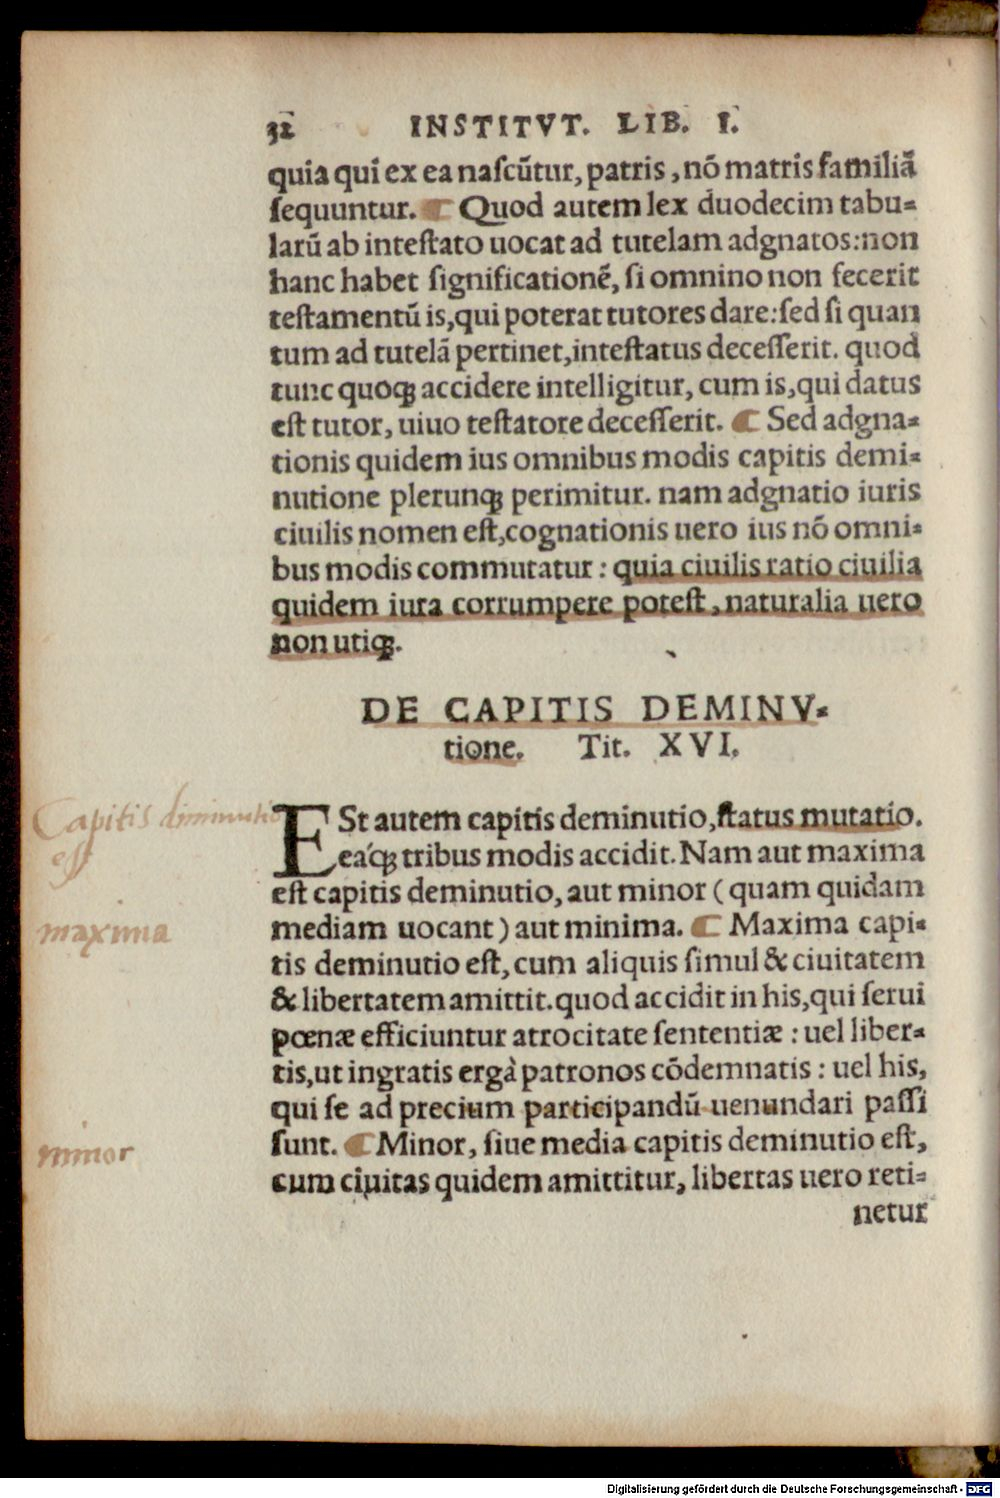 32 INSTITVT. LIB. I.
quia qui ex ea naſcũtur, patris, nõ matris familiã
ſequuntur. ⸿ Quod autem lex duodecim tabu-
larũ ab inteſtato uocat ad tutelam adgnatos: non
hanc habet ſignificationẽ, ſi omnino non fecerit
teſtamentũ is, qui poterat tutores dare: ſed ſi quan
tum ad tutelã pertinet, inteſtatus deceſſerit. quod
tunc quoqꝫ accidere intelligitur, cum is, qui datus
eſt tutor, uiuo teſtatore deceſſerit. ⸿ Sed adgna-
tionis quidem ius omnibus modis capitis demi-
nutione plerunqꝫ perimitur. nam adgnatio iuris
ciuilis nomen eſt, cognationis uero ius nõ omni-
bus modis commutatur: quia ciuilis ratio ciuilia
quidem iura corrumpere poteſt, naturalia uero
non utiqꝫ.
DE CAPITIS DEMINV-
tione. Tit. XVI.
Capitis diminutio
eſt
ESt autem capitis deminutio, ſtatus mutatio.
eáqꝫ tribus modis accidit. Nam aut maxima
eſt capitis deminutio, aut minor (quam quidam
maxima
mediam uocant) aut minima. ⸿ Maxima capi-
tis deminutio eſt, cum aliquis ſimul & ciuitatem
& libertatem amittit. quod accidit in his, qui ſerui
pœnæ efficiuntur atrocitate ſententiæ: uel liber-
tis, ut ingratis ergà patronos cõdemnatis: uel his,
qui ſe ad precium participandũ uenundari paſſi
minor
ſunt. ⸿ Minor, ſiue media capitis deminutio eſt,
cum ciuitas quidem amittitur, libertas uero reti-
netur
Digitalisierung gefördert durch die Deutsche Forschungsgemeinschaft - DFG